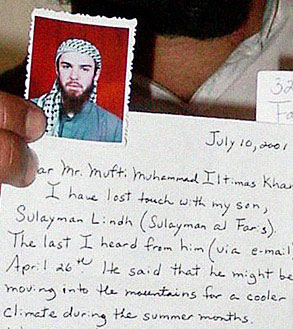 32
Fa
July 10, 2001
ar Mr. Mufti Muhammad Iltimas Khan
I have lost touch with my son,
Sulayman Lindh (Sulayman al Faris).
The last I heard from him (via e-mail)
April 26th He said that he might be
moving into the mountains for a cooler
climate during the summer months.